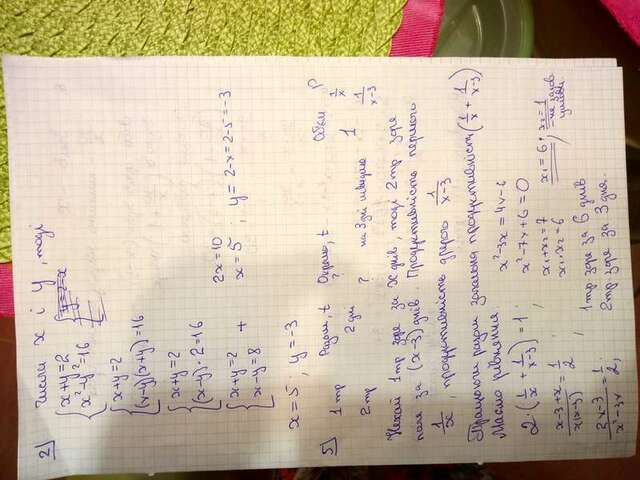 2) Числа x і y, тоді
{ x+y=2
x²-y²=16 { y=2-x
{ x+y=2
(x-y)(x+y)=16
{ x+y=2
(x-y)·2=16
{ x+y=2
x-y=8 + 2x=10
x=5; y=2-x=2-5=-3
x=5; y=-3
5) Разом, t Окремо, t Обсяг P
1 тр 2 дні ? 1 1/x
2 тр ? на 3 дні швидше 1/(x-3)
Нехай 1 тр зоре за x днів, тоді 2 тр зоре
поле за (x-3) днів. Продуктивність першого
1/x, продуктивність другого 1/(x-3)
Працюючи разом загальна продуктивність (1/x + 1/(x-3))
Маємо рівняння
2·(1/x + 1/(x-3))=1;
(x-3+x)/(x(x-3))=1/2;
(2x-3)/(x²-3x)=1/2;
x²-3x=4x-6
x²-7x+6=0
x₁+x₂=7
x₁·x₂=6
x₁=6; x₂=1
-не задов.
умови
1 тр. зоре за 6 днів
2 тр. зоре за 3 дня.